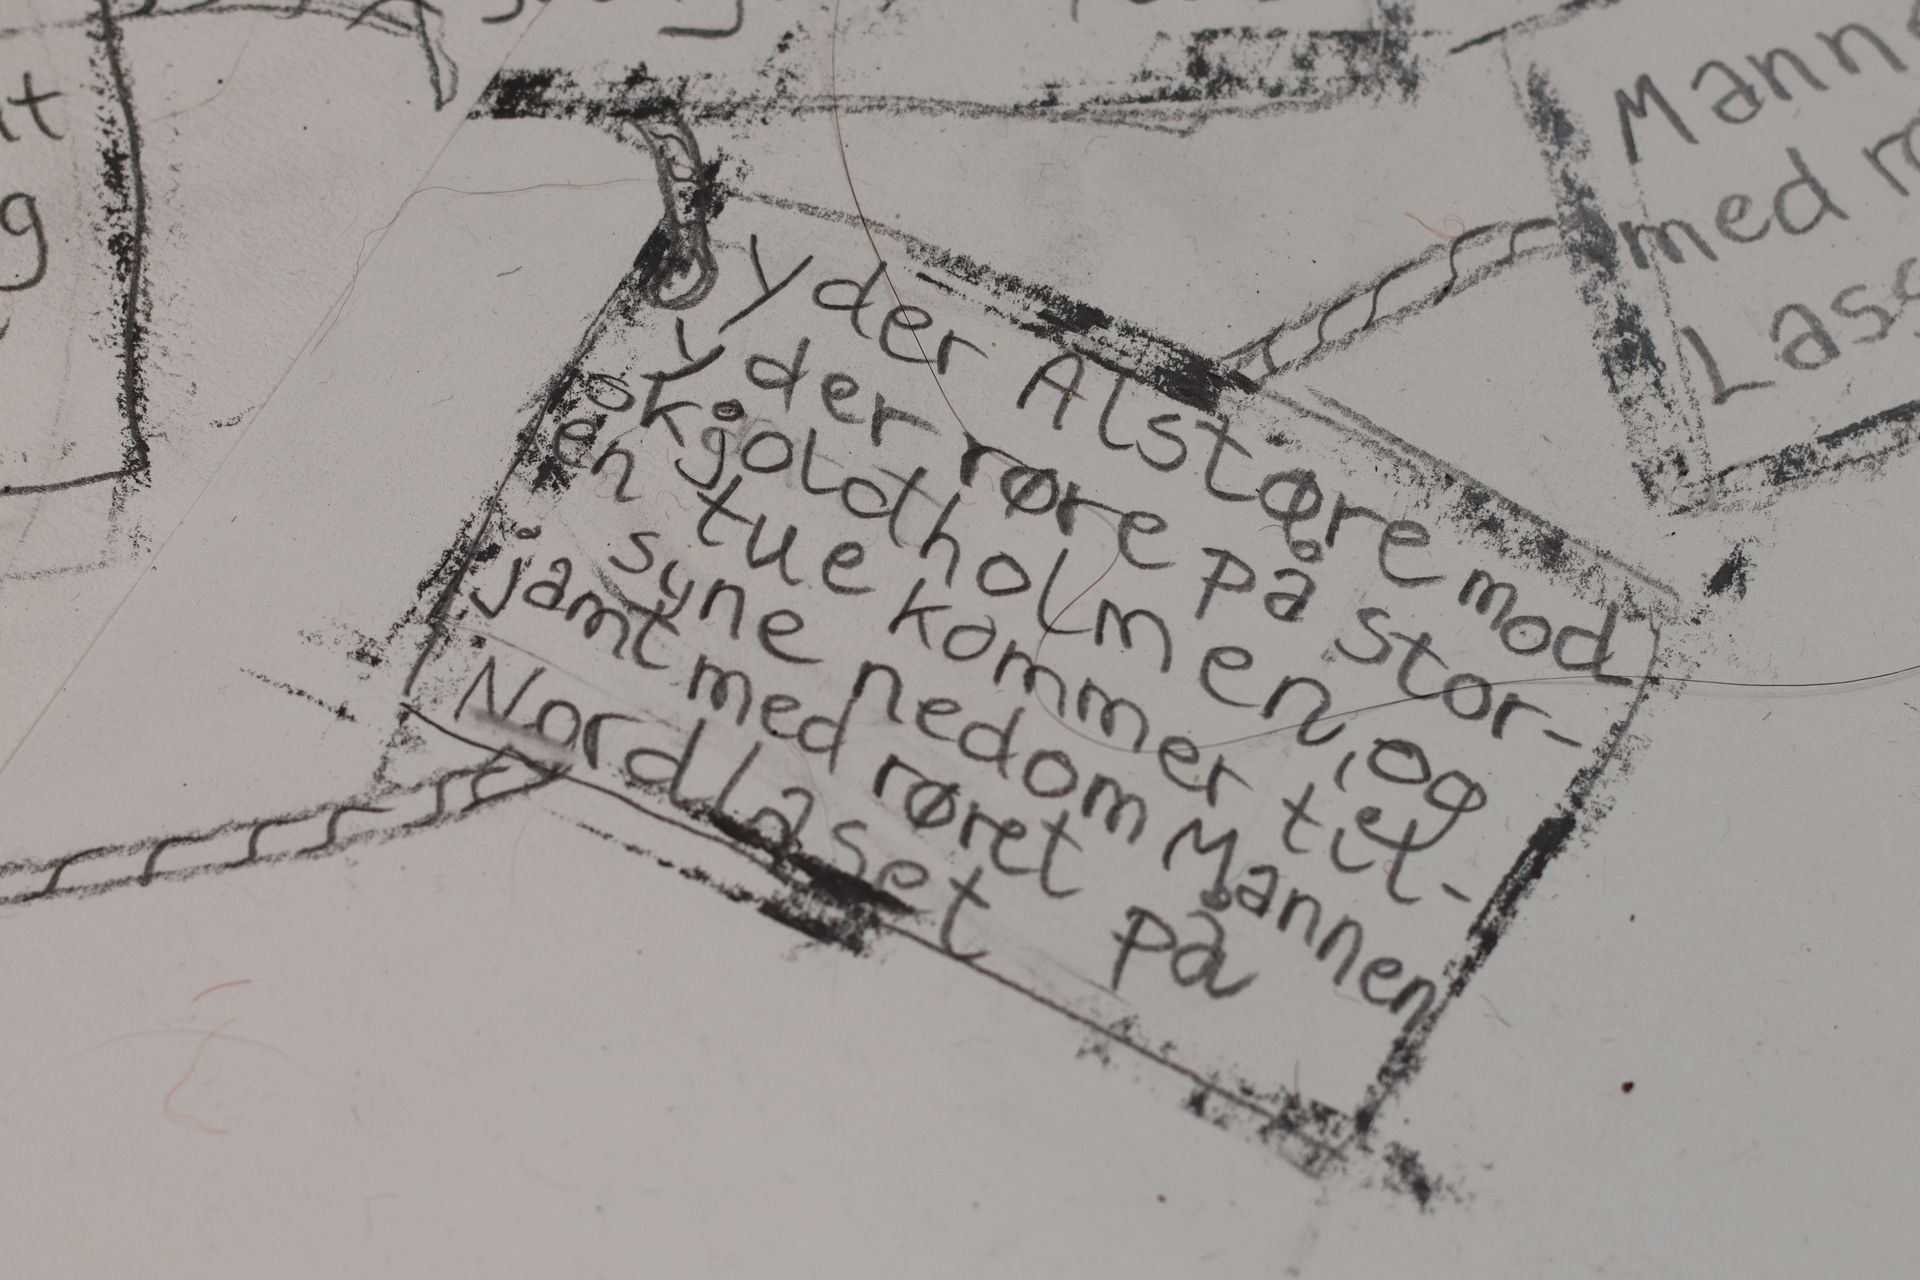 it
g
yder Alstøre mod
yder røre på stor-
skjoldholmen, og
en tue kommer til-
syne nedom Mannen
jamt med røret på
Nordlaset
Mann
med
Lass